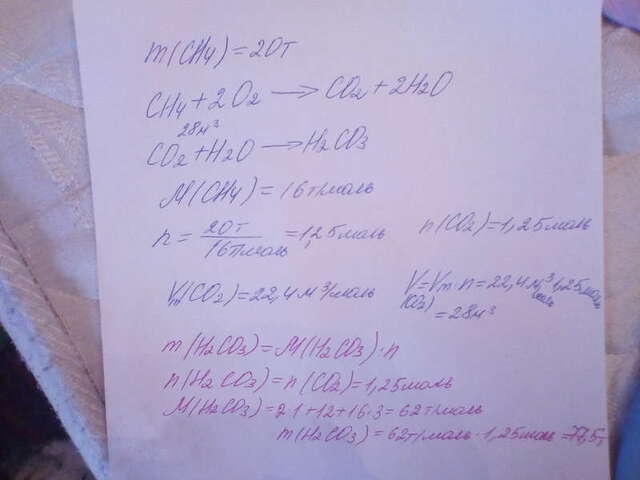 m(CH4)=20т
CH4+2O2→CO2+2H2O
28м³
CO2+H2O→H2CO3
M(CH4)=16т/моль
n=20т/16т/моль=1,25моль n(CO2)=1,25моль
Vm(CO2)=22,4м³/моль V=Vm·n=22,4м³/моль·1,25моль
(CO2) =28м³
m(H2CO3)=M(H2CO3)·n
n(H2CO3)=n(CO2)=1,25моль
M(H2CO3)=2·1+12+16·3=62т/моль
m(H2CO3)=62т/моль·1,25моль=77,5т